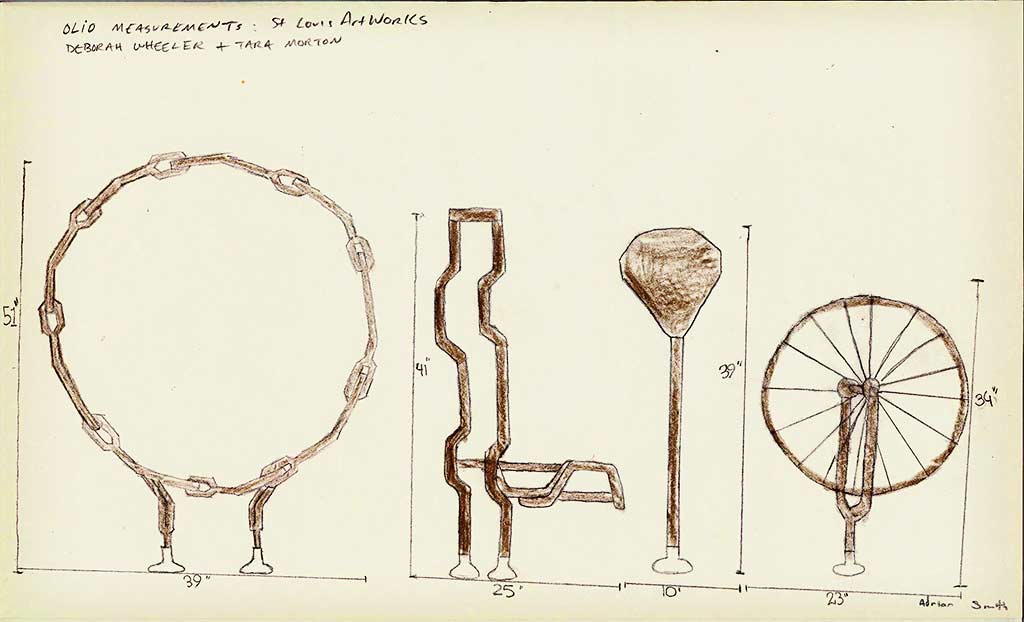 OLIO MEASUREMENTS: St Louis ArtWorks
DEBORAH WHEELER + TARA MORTON
51"
39"
41"
25"
39"
10'
34"
23"
Adrian Smith